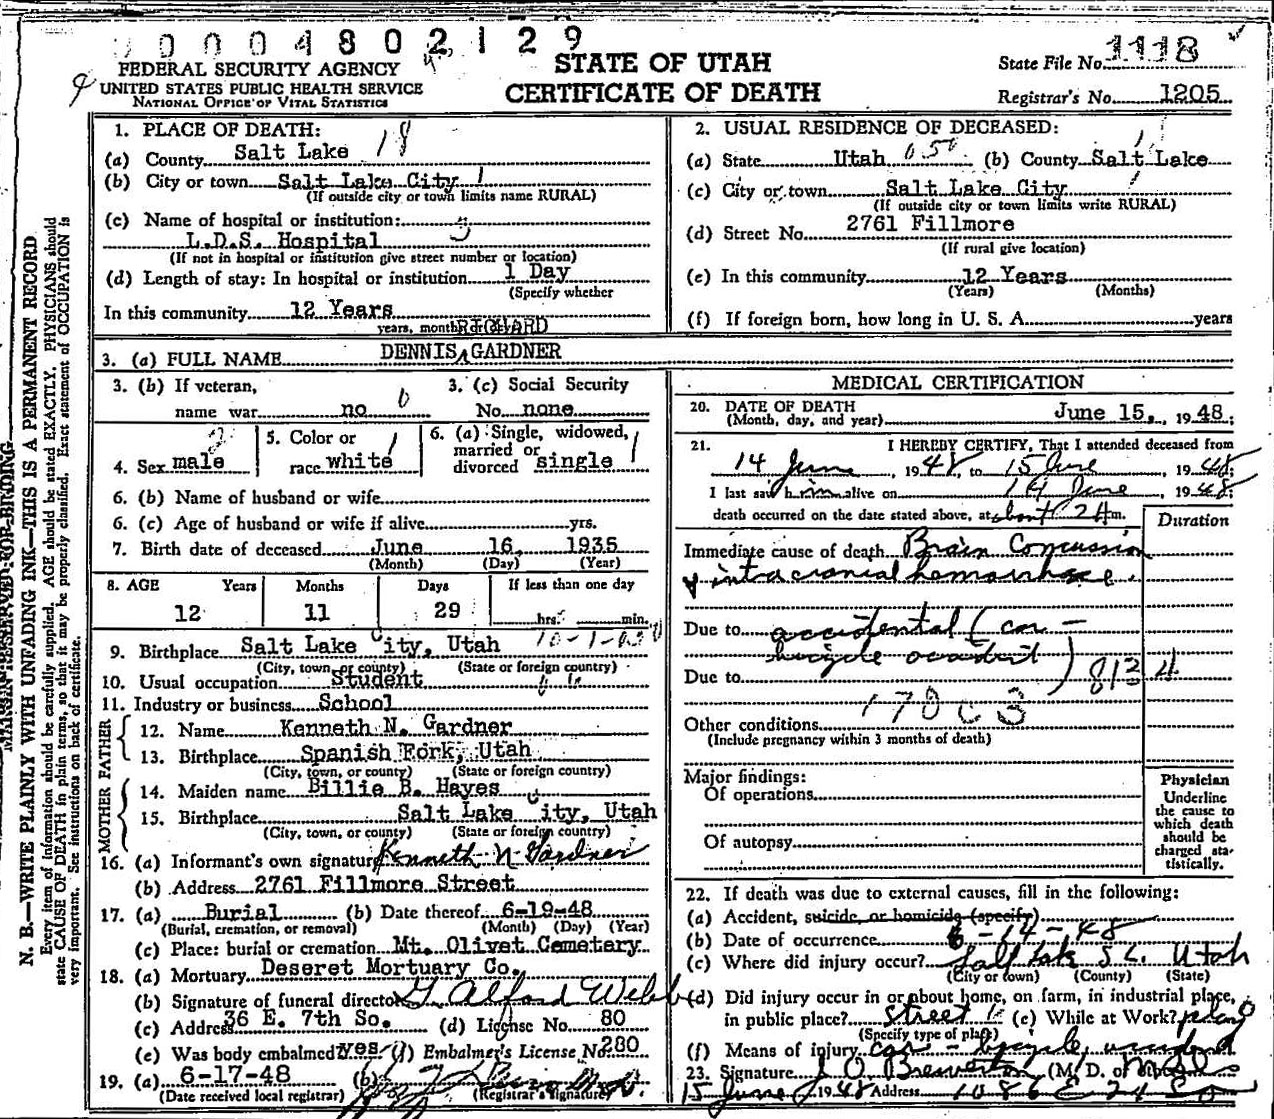 0 0 0 4 8 0 2 1 2 9
FEDERAL SECURITY AGENCY
UNITED STATES PUBLIC HEALTH SERVICE
NATIONAL OFFICE OF VITAL STATISTICS
STATE OF UTAH
CERTIFICATE OF DEATH
State File No. 1118
Registrar's No. 1205
N. B.—WRITE PLAINLY WITH UNFADING INK—THIS IS A PERMANENT RECORD
Every item of information should be carefully supplied. AGE should be stated EXACTLY. PHYSICIANS should
state CAUSE OF DEATH in plain terms, so that it may be properly classified. Exact statement of OCCUPATION is
very important. See instructions on back of certificate.
MARGIN RESERVED FOR BINDING
1. PLACE OF DEATH:
(a) County Salt Lake 18
(b) City or town Salt Lake City 1
(If outside city or town limits name RURAL)
(c) Name of hospital or institution:
L.D.S. Hospital
(If not in hospital or institution give street number or location)
(d) Length of stay: In hospital or institution 1 Day
(Specify whether
In this community 12 Years
years, months
2. USUAL RESIDENCE OF DECEASED:
(a) State Utah 050 (b) County Salt Lake
(c) City or town Salt Lake City
(If outside city or town limits write RURAL)
(d) Street No. 2761 Fillmore
(If rural give location)
(e) In this community 12 Years
(Years) (Months)
(f) If foreign born, how long in U. S. A. years
RICHARD
3. (a) FULL NAME DENNIS GARDNER
3. (b) If veteran,
name war no
3. (c) Social Security
No. none
4. Sex male
5. Color or
race white
6. (a) Single, widowed,
married or
divorced single
6. (b) Name of husband or wife
6. (c) Age of husband or wife if alive yrs.
7. Birth date of deceased June 16, 1935
(Month) (Day) (Year)
8. AGE Years Months Days If less than one day
12 11 29 hrs. min.
9. Birthplace Salt Lake City, Utah
(City, town, or county) (State or foreign country)
10. Usual occupation Student
11. Industry or business School
FATHER
12. Name Kenneth N. Gardner
13. Birthplace Spanish Fork, Utah
(City, town, or county) (State or foreign country)
MOTHER
14. Maiden name Billie B. Hayes
15. Birthplace Salt Lake City, Utah
(City, town, or county) (State or foreign country)
16. (a) Informant's own signature Kenneth N Gardner
(b) Address 2761 Fillmore Street
17. (a) Burial (b) Date thereof 6-19-48
(Burial, cremation, or removal) (Month) (Day) (Year)
(c) Place: burial or cremation Mt. Olivet Cemetery
18. (a) Mortuary Deseret Mortuary Co.
(b) Signature of funeral director G. Alford Webb
(c) Address 36 E. 7th So. (d) License No. 80
(e) Was body embalmed? Yes (f) Embalmer's License No. 280
19. (a) 6-17-48 (b)
(Date received local registrar) (Registrar's signature)
MEDICAL CERTIFICATION
20. DATE OF DEATH
(Month, day, and year) June 15, 1948;
21. I HEREBY CERTIFY, That I attended deceased from
14 June, 1948, to 15 June, 1948;
I last saw him alive on 14 June, 1948;
death occurred on the date stated above, at about 2 A m.
Duration
Immediate cause of death Brain Concussion
& intracranial hemorrhage.
Due to accidental (car -
bicycle accident)
Due to 812 4
178 C 3
Other conditions
(Include pregnancy within 3 months of death)
Major findings:
Of operations
Of autopsy
Physician
Underline
the cause to
which death
should be
charged sta-
tistically.
22. If death was due to external causes, fill in the following:
(a) Accident, suicide, or homicide (specify)
(b) Date of occurrence 6-14-48
(c) Where did injury occur? Salt Lake S.L. Utah
(City or town) (County) (State)
(d) Did injury occur in or about home, on farm, in industrial place,
in public place? street (e) While at Work? play
(Specify type of place)
(f) Means of injury car - bicycle, accident
23. Signature J O Brewerton (M. D. or
15 June 1948 Address 1086 E 21 So